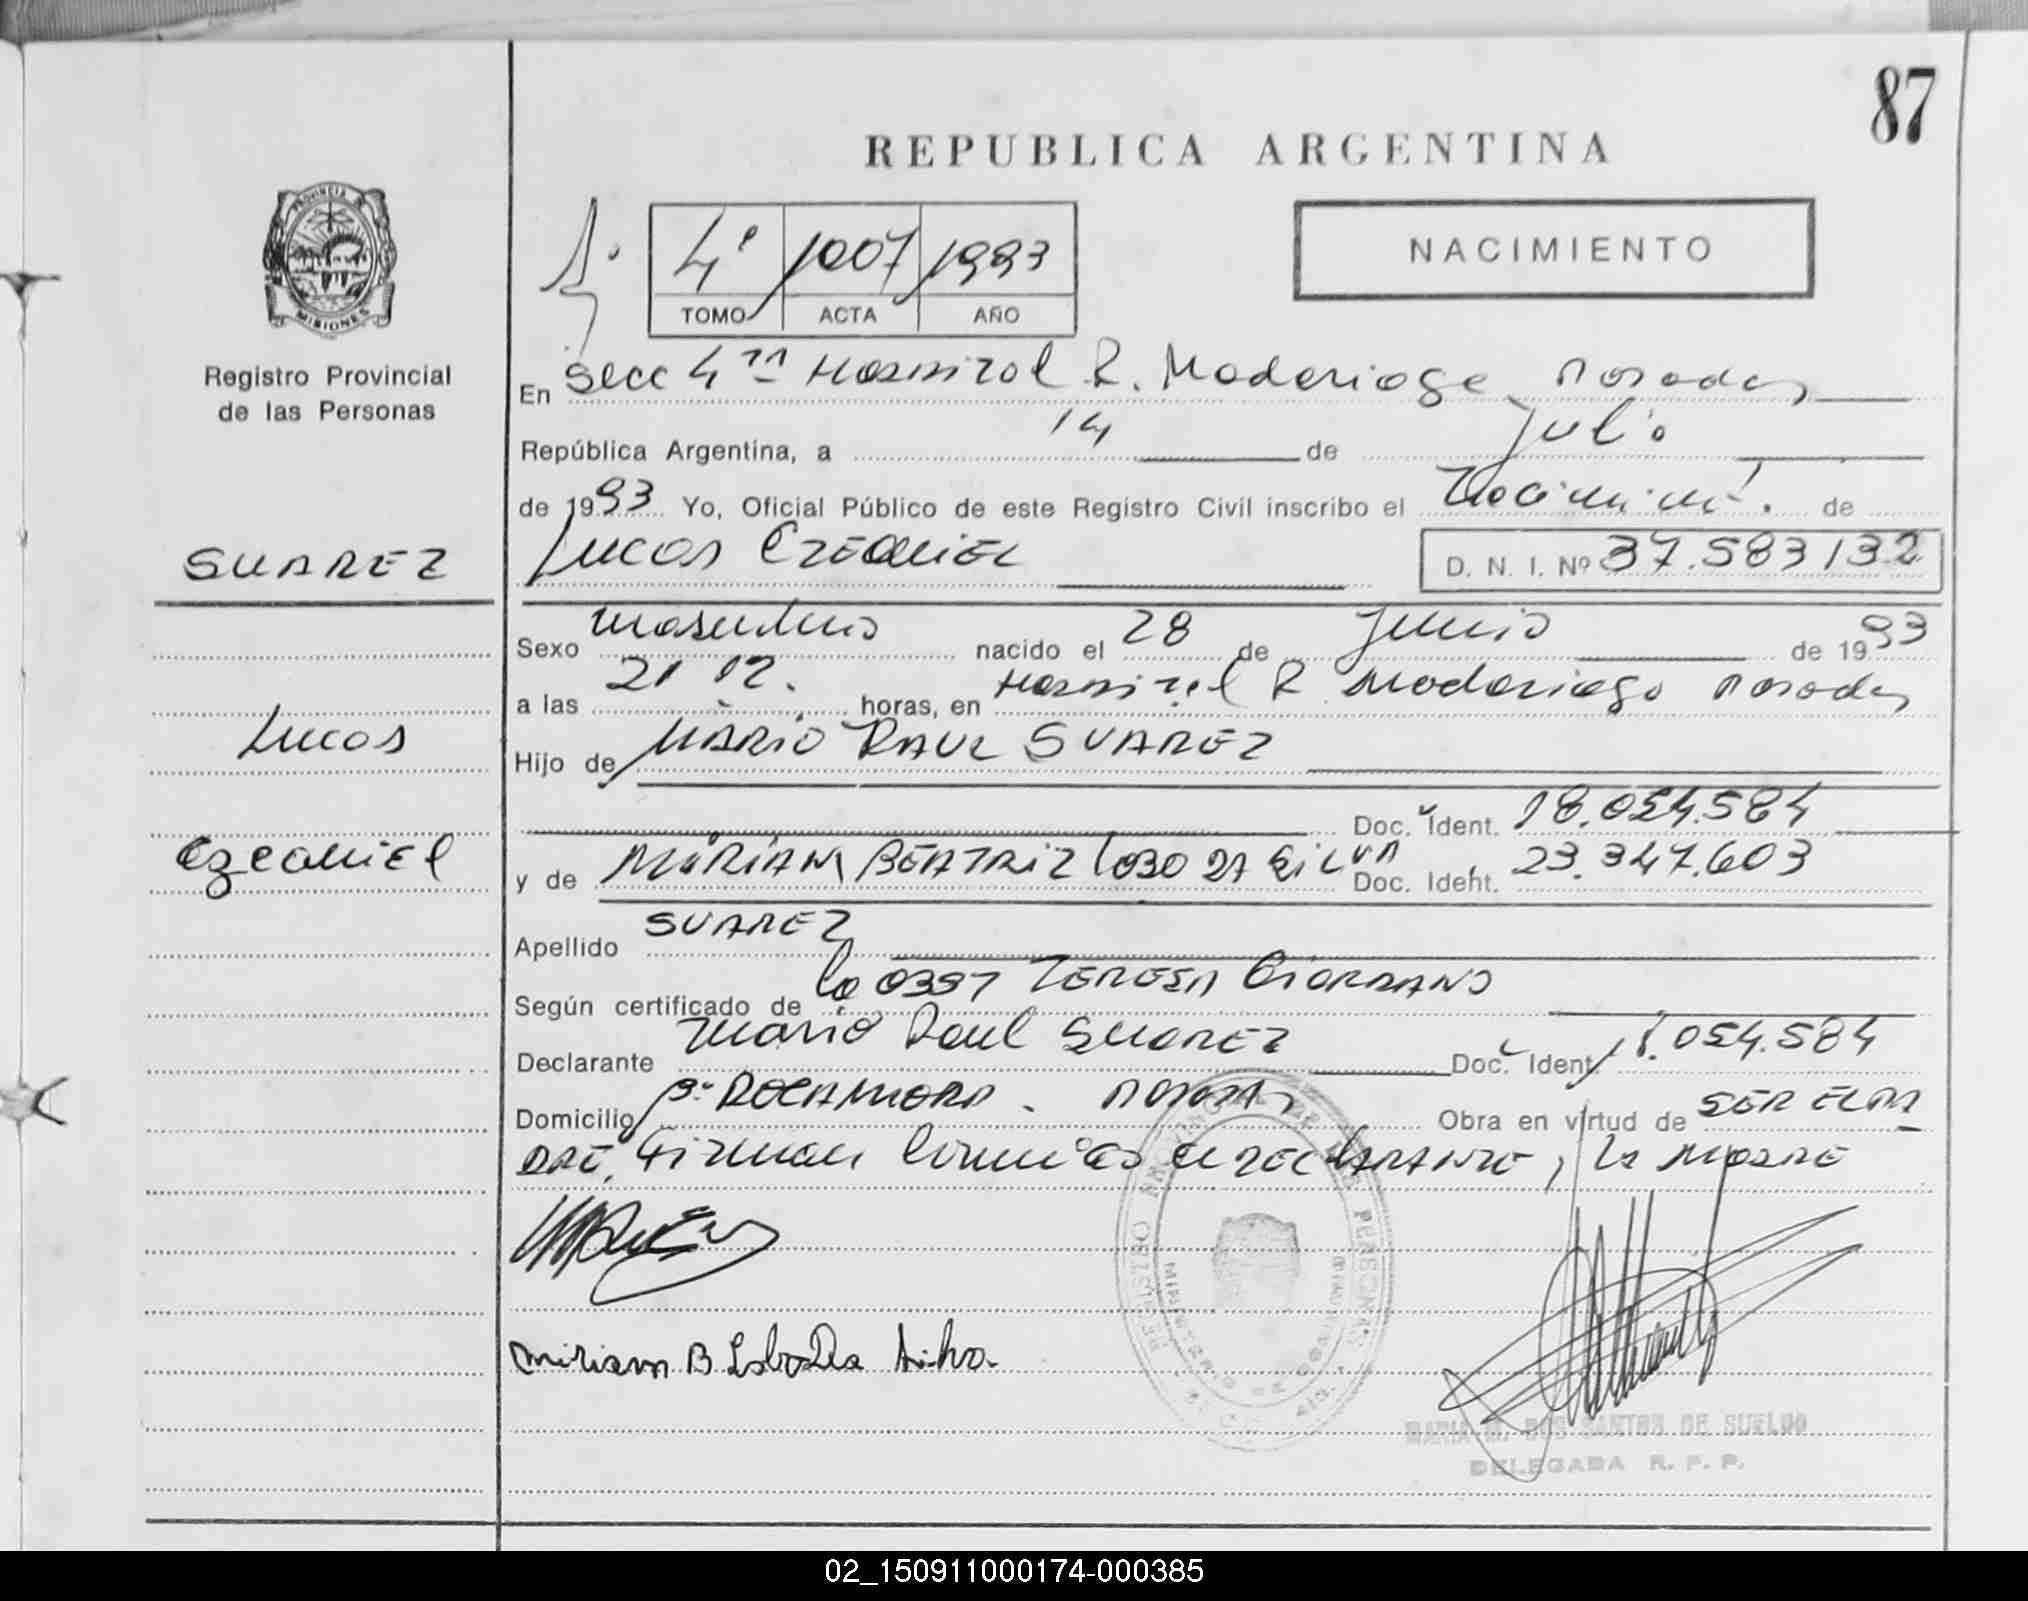 87
REPUBLICA ARGENTINA
PROVINCIA DE
MISIONES
1º
4º 1007 1993
TOMO ACTA AÑO
NACIMIENTO
Registro Provincial
de las Personas
En Secc 4ta Hospital R. Madariaga Posadas
República Argentina, a 14 de Julio
de 1993 Yo, Oficial Público de este Registro Civil inscribo el Nacimient. de
SUAREZ
Lucas EZEQUIEL D. N. I. Nº 37.583132
Sexo masculino nacido el 28 de Junio de 1993
a las 21 12. horas, en Hospital R Madariaga Posadas
Lucas
Hijo de MARIO RAUL SUAREZ
Doc. Ident. 18.054.584
Ezequiel
y de MIRIAM BEATRIZ LOBO DA SILVA Doc. Ident. 23.347.603
Apellido SUAREZ
Según certificado de 0397 TERESA GIORDANO
Declarante Mario Raul SUAREZ Doc. Ident 18.054.584
Domicilio Bº ROCAMORA . POSADAS Obra en virtud de SER EL PA
DRE, Firman DECLARANTE, la MADRE
Miriam B Lobo Da Silva.
REGISTRO PROVINCIAL DE LAS PERSONAS
MINISTERIO DE GOBIERNO
MARIA M. DOS SANTOS DE SUELDO
DELEGADA R. P. P.
02_150911000174-000385